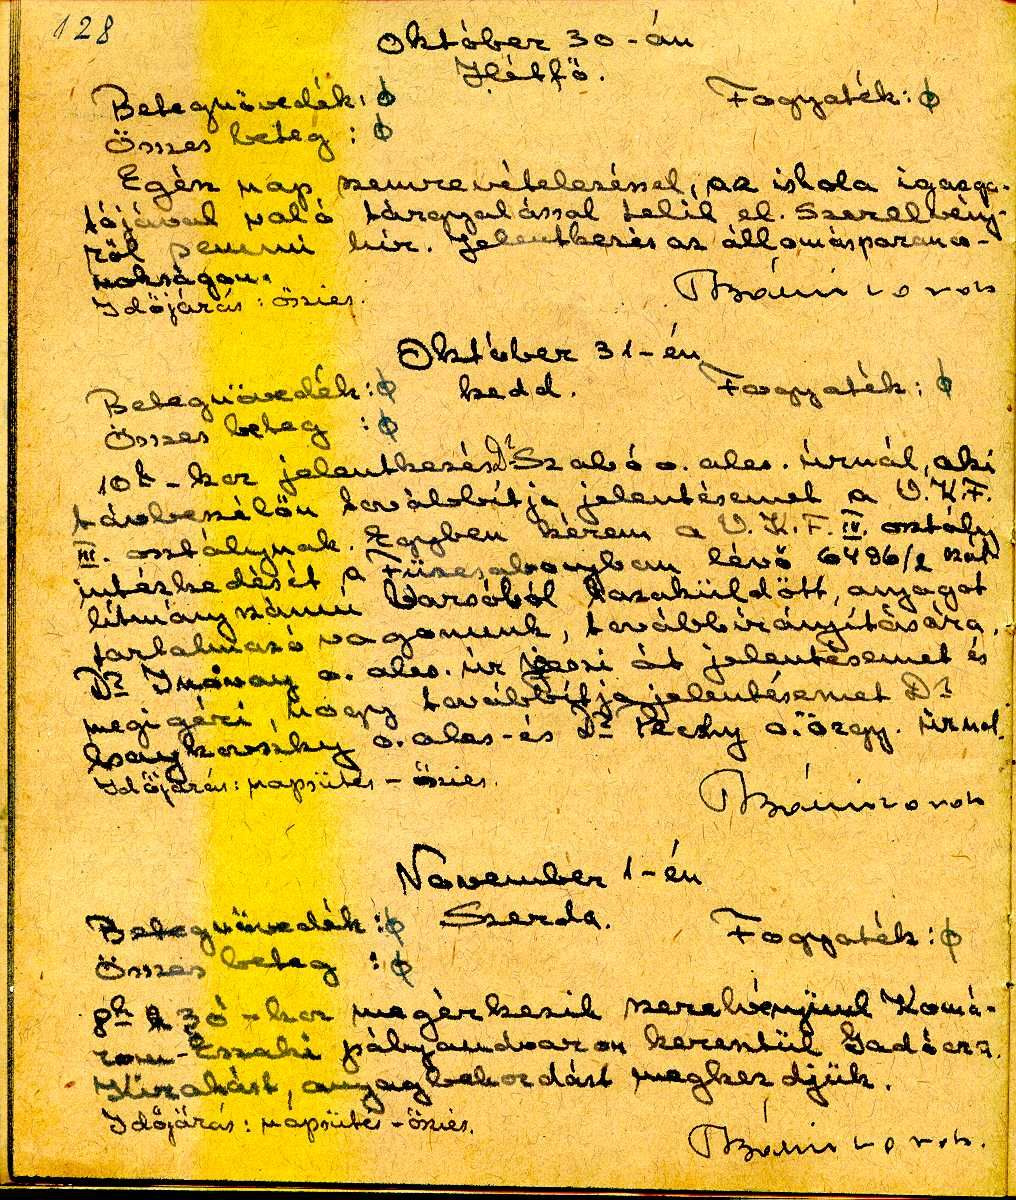 128
Október 30-án
Hétfő.
Betegnövedék: ϕ Fogyaték: ϕ
Összes beteg: ϕ
Egész nap szemrevételezéssel, az iskola igazga-
tójával való tárgyalással telik el. Szerelvény-
ről semmi hír. Jelentkezés az állomásparancs-
nokságon.
Időjárás: őszies.
Október 31-én
Betegnövedék: ϕ kedd. Fogyaték: ϕ
Összes beteg: ϕ
10h-kor jelentkezés Dr Szabó o. ales. úrnál, aki
távbeszélőn továbbítja jelentésemet a V.K.F.
III. osztálynak. Egyben kérem a V.K.F. IV. osztály
intézkedését a Füzesabonyban lévő 6486/2 szál-
lítmányszámú Varsóból hazaküldött, anyagot
tartalmazó vagonunk, továbbirányítására.
Dr o. ales. úr veszi át jelentésemet és
megigéri, hogy továbbítja jelentésemet Dr
o. ales- és Dr Péchy o. őrgy. úrnak.
Időjárás: napsütés - őszies.
November 1-én
Betegnövedék: ϕ Szerda. Fogyaték: ϕ
Összes beteg: ϕ
8h 30-kor megérkezik szerelvényünk Komá-
rom-Északi pályaudvaron keresztül
Kirakást, anyagbehordást megkezdjük.
Időjárás: napsütés - őszies.